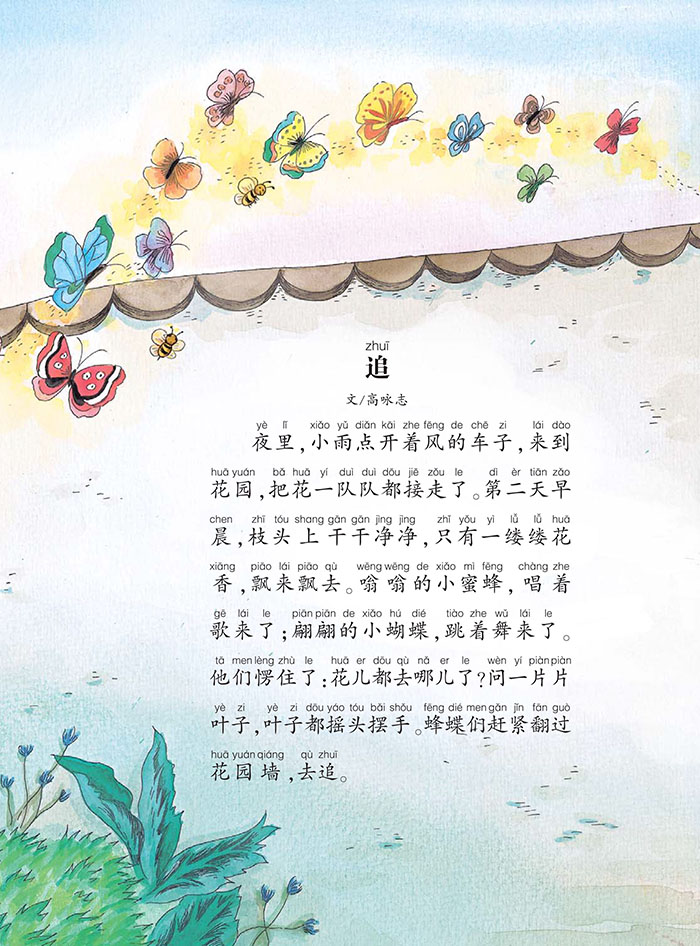 zhuī
追
文/高咏志
yè lǐ xiǎo yǔ diǎn kāi zhe fēng de chē zi lái dào
夜里，小雨点开着风的车子，来到
huā yuán bǎ huā yí duì duì dōu jiē zǒu le dì èr tiān zǎo
花园，把花一队队都接走了。第二天早
chen zhī tóu shang gān gān jìng jìng zhǐ yǒu yì lǚ lǚ huā
晨，枝头上干干净净，只有一缕缕花
xiāng piāo lái piāo qù wēng wēng de xiǎo mì fēng chàng zhe
香，飘来飘去。嗡嗡的小蜜蜂，唱着
gē lái le piān piān de xiǎo hú dié tiào zhe wǔ lái le
歌来了；翩翩的小蝴蝶，跳着舞来了。
tā men lèng zhù le huā er dōu qù nǎ er le wèn yí piàn piàn
他们愣住了：花儿都去哪儿了？问一片片
yè zi yè zi dōu yáo tóu bǎi shǒu fēng dié men gǎn jǐn fān guò
叶子，叶子都摇头摆手。蜂蝶们赶紧翻过
huā yuán qiáng qù zhuī
花园墙，去追。